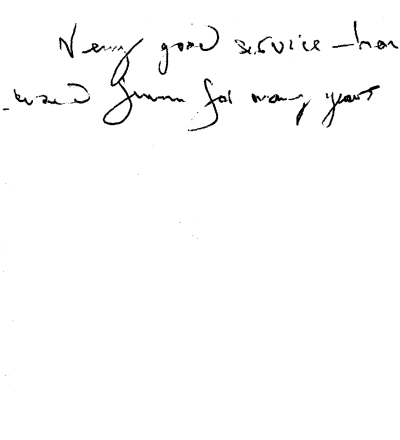 Very good service – have
used for many years